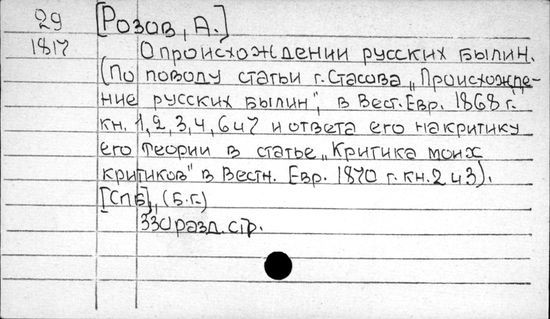 29 [Розов, А.]
1817 О происхождении русских былин.
(По поводу статьи г. Стасова „Происхожде-
ние русских былин", в Вест. Евр. 1868 г.
кн. 1, 2, 3, 4, 6 и 7 и ответа его на критику
его теории в статье „Критика моих
критиков" в Вестн. Евр. 1870 г. кн. 2 и 3).
[СПБ], (Б.г.)
330 разд. стр.